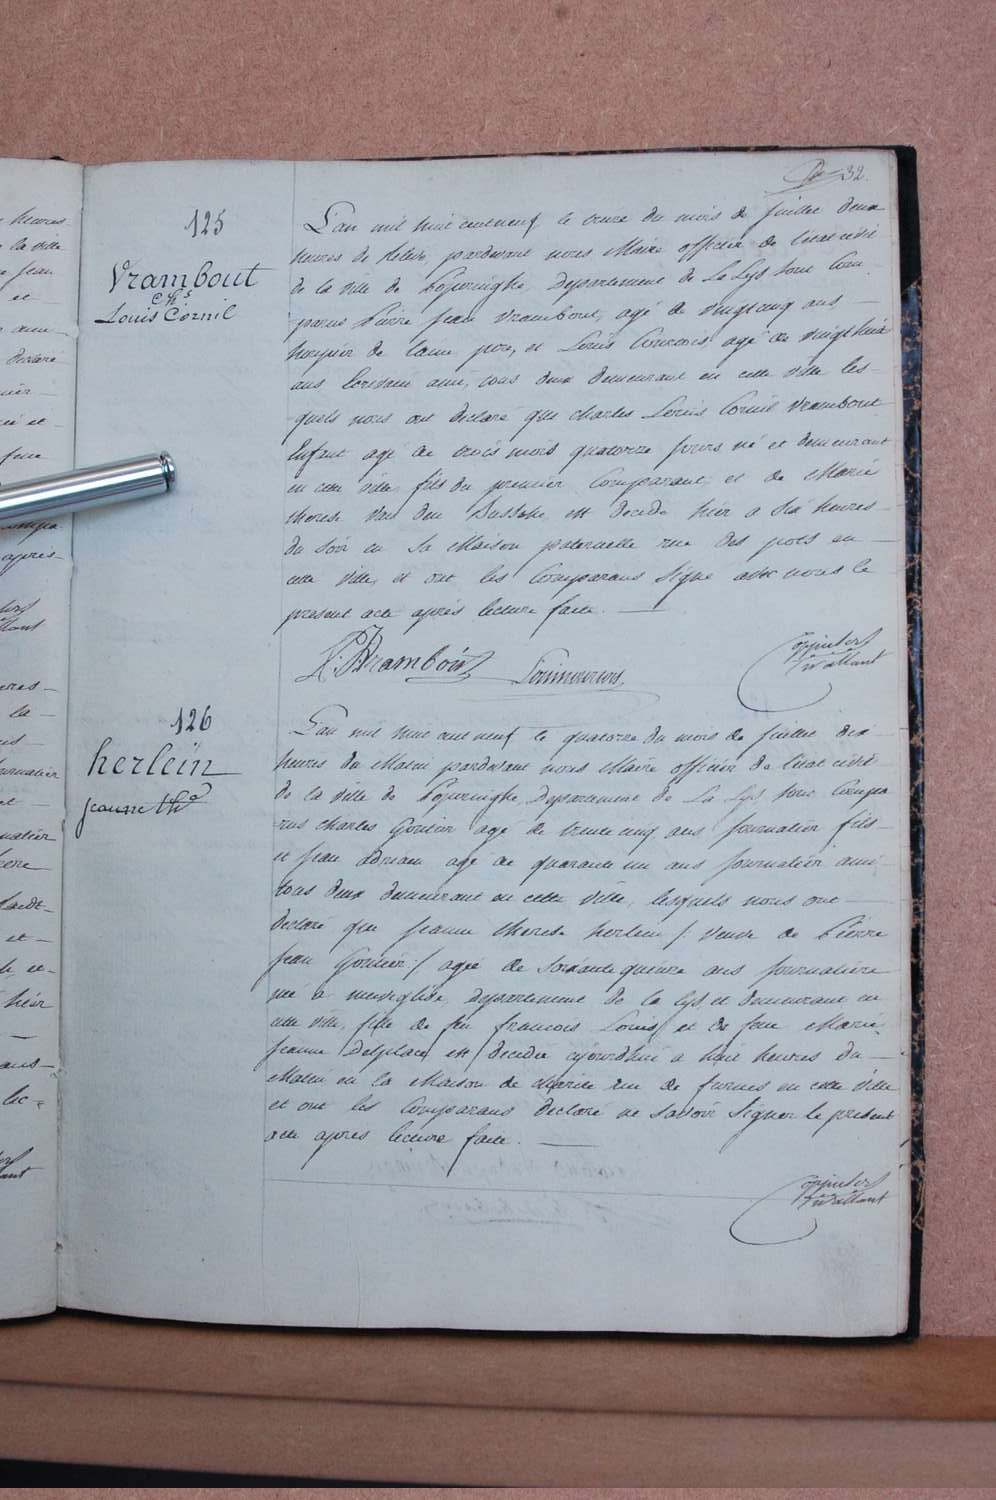 32
125
Vrambout
Chs
Louis Cornil
L'an mil huit cent neuf le treize du mois de juillet deux
heures de relevée, pardevant nous Maire officier de l'etat civil
de la ville de Poperinghe, Departement de La Lys sont Com-
parus Pierre Jean Vrambout, agé de vingtcinq ans -
ans Ecrivain ami, tous deux demeurant en cette ville les-
quels nous ont declaré que charles Louis Cornil Vrambout
Enfant agé de trois mois quatorze jours né et demeurant
en cette ville, fils du premier Comparant, et de Marie
therese Van den Bussche est decedé hier a six heures -
du soir en sa Maison paternelle rue des pots en -
cette ville, et ont les Comparans signé avec nous le
present acte après lecture faite. -
P. J. Vrambout
126
herlein
jeanne the
L'an mil huit cent neuf le quatorze du mois de juillet dix -
heures du Matin pardevant nous Maire officier de l'etat civil
de la ville de Poperinghe, Departement de La Lys, sont Compa
rus charles Goutier agé de trente cinq ans journalier fils -
et jean adriaen agé de quarante un ans journalier ami -
tous deux demeurant en cette ville, lesquels nous ont -
declaré que jeanne therese herlein /: veuve de Pierre
jean Goutier :/ agée de soixante quinze ans journaliere
né a neuveglise, departement de la Lys et demeurant en
cette ville, fille de feu francois Louis et de feue Marie
jeanne Delplace est decedée aujourdhui a huit heures du -
Matin en la Maison de charité rue de furnes en cette ville
et ont les Comparans declaré ne savoir signer le present
acte apres lecture faite. -